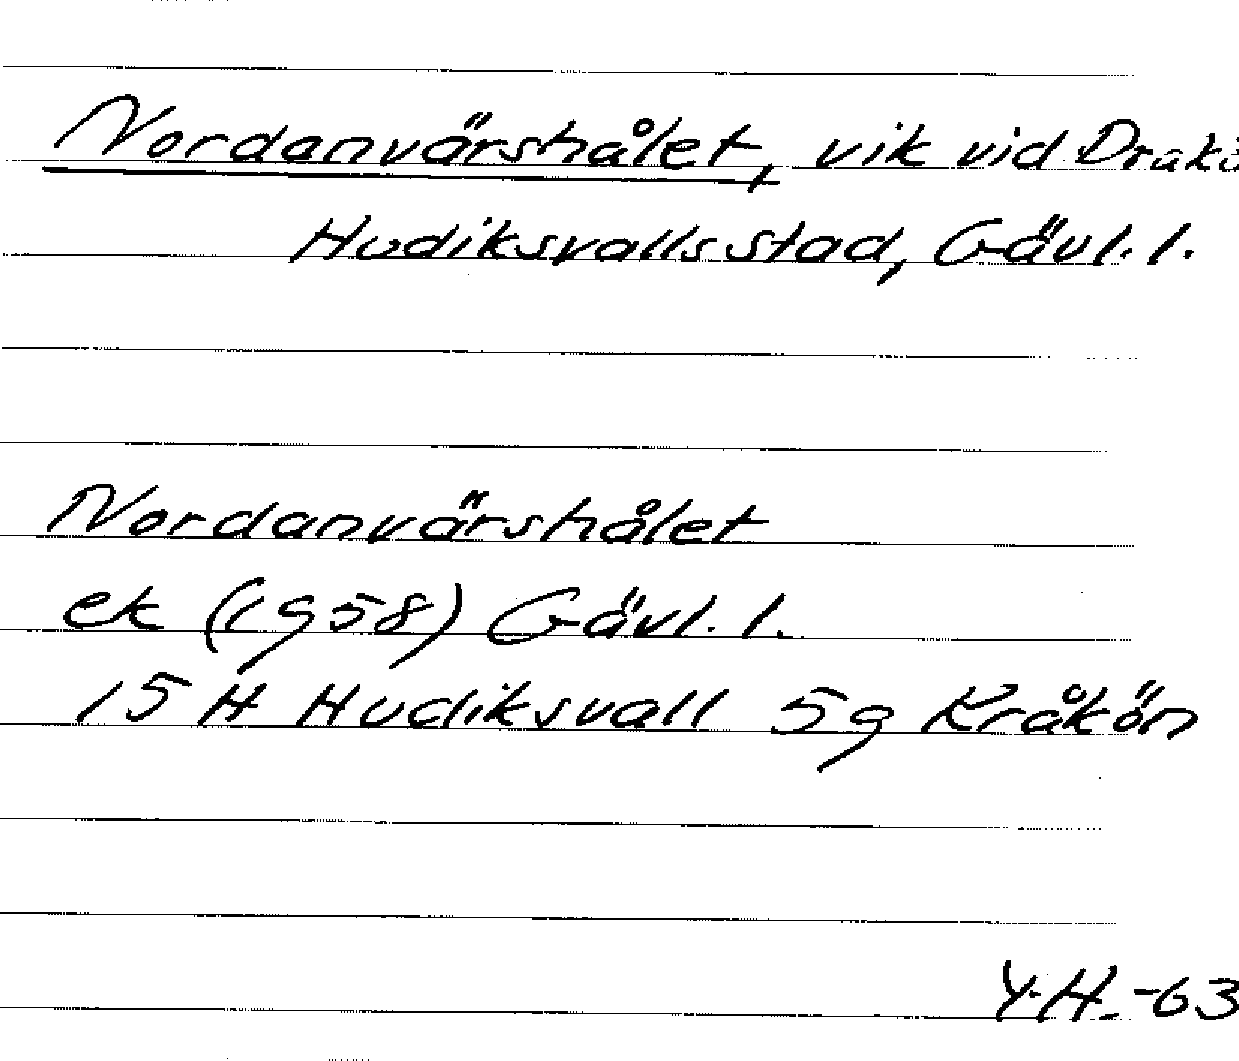 Nordanvärshålet, vik vid Drakö
Hudiksvalls stad, Gävl. l.
Nordanvärshålet
ek (1958) Gävl. l.
15 H Hudiksvall 5g Kråkön
Y.H. -63